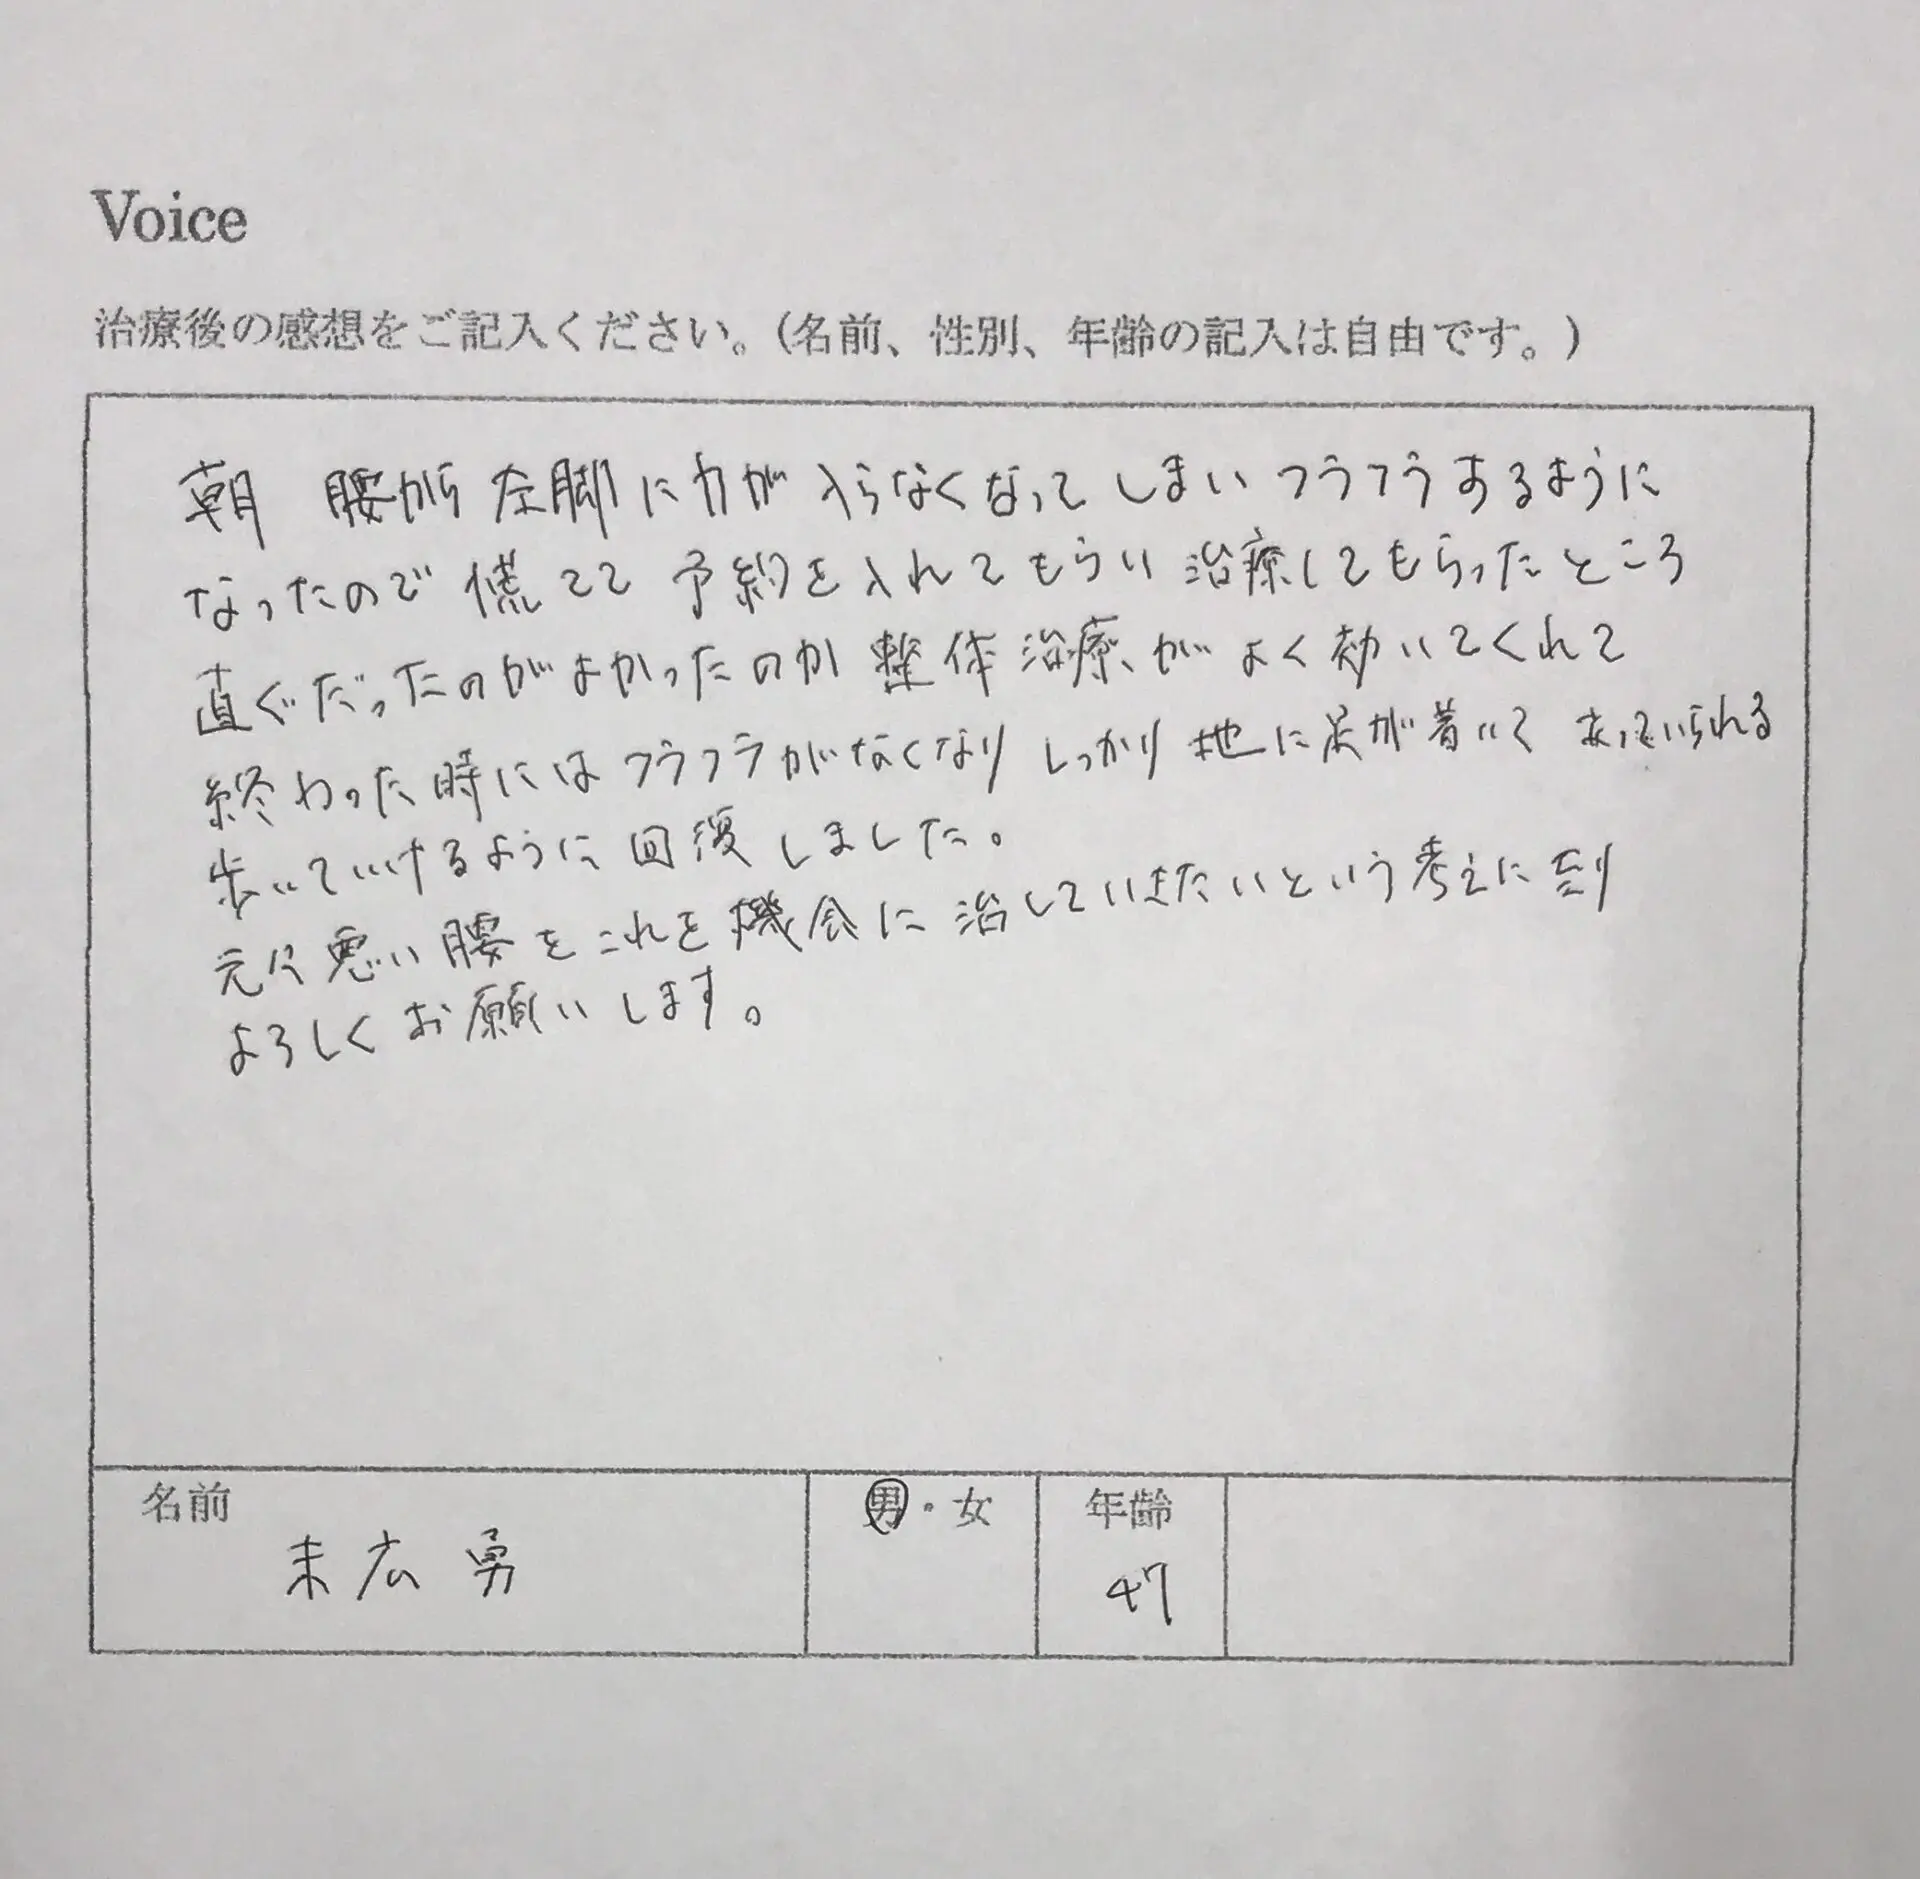 Voice
治療後の感想をご記入ください。(名前、性別、年齢の記入は自由です。)
朝 腰から左脚に力が入らなくなってしまいフラフラするように
なったので慌てて予約を入れてもらい治療してもらったところ
直ぐだったのがよかったのか整体治療がよく効いてくれて
終わった時にはフラフラがなくなりしっかり地に足が着いて立っていられる
歩いていけるように回復しました。
元々悪い腰をこれを機会に治していきたいという考えに至り
よろしくお願いします。
名前 男・女 年齢
末広 勇 47